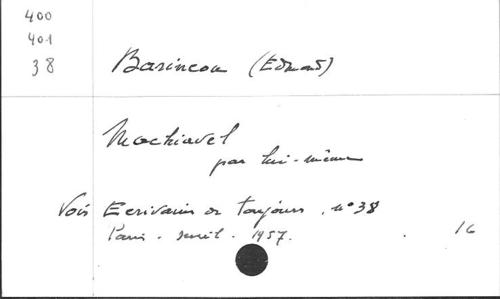 400
401
38 Barincou (Edmond)
Machiavel
par lui-même
Voir Ecrivains de toujours. n° 38
Paris. Seuil. 1957. 16